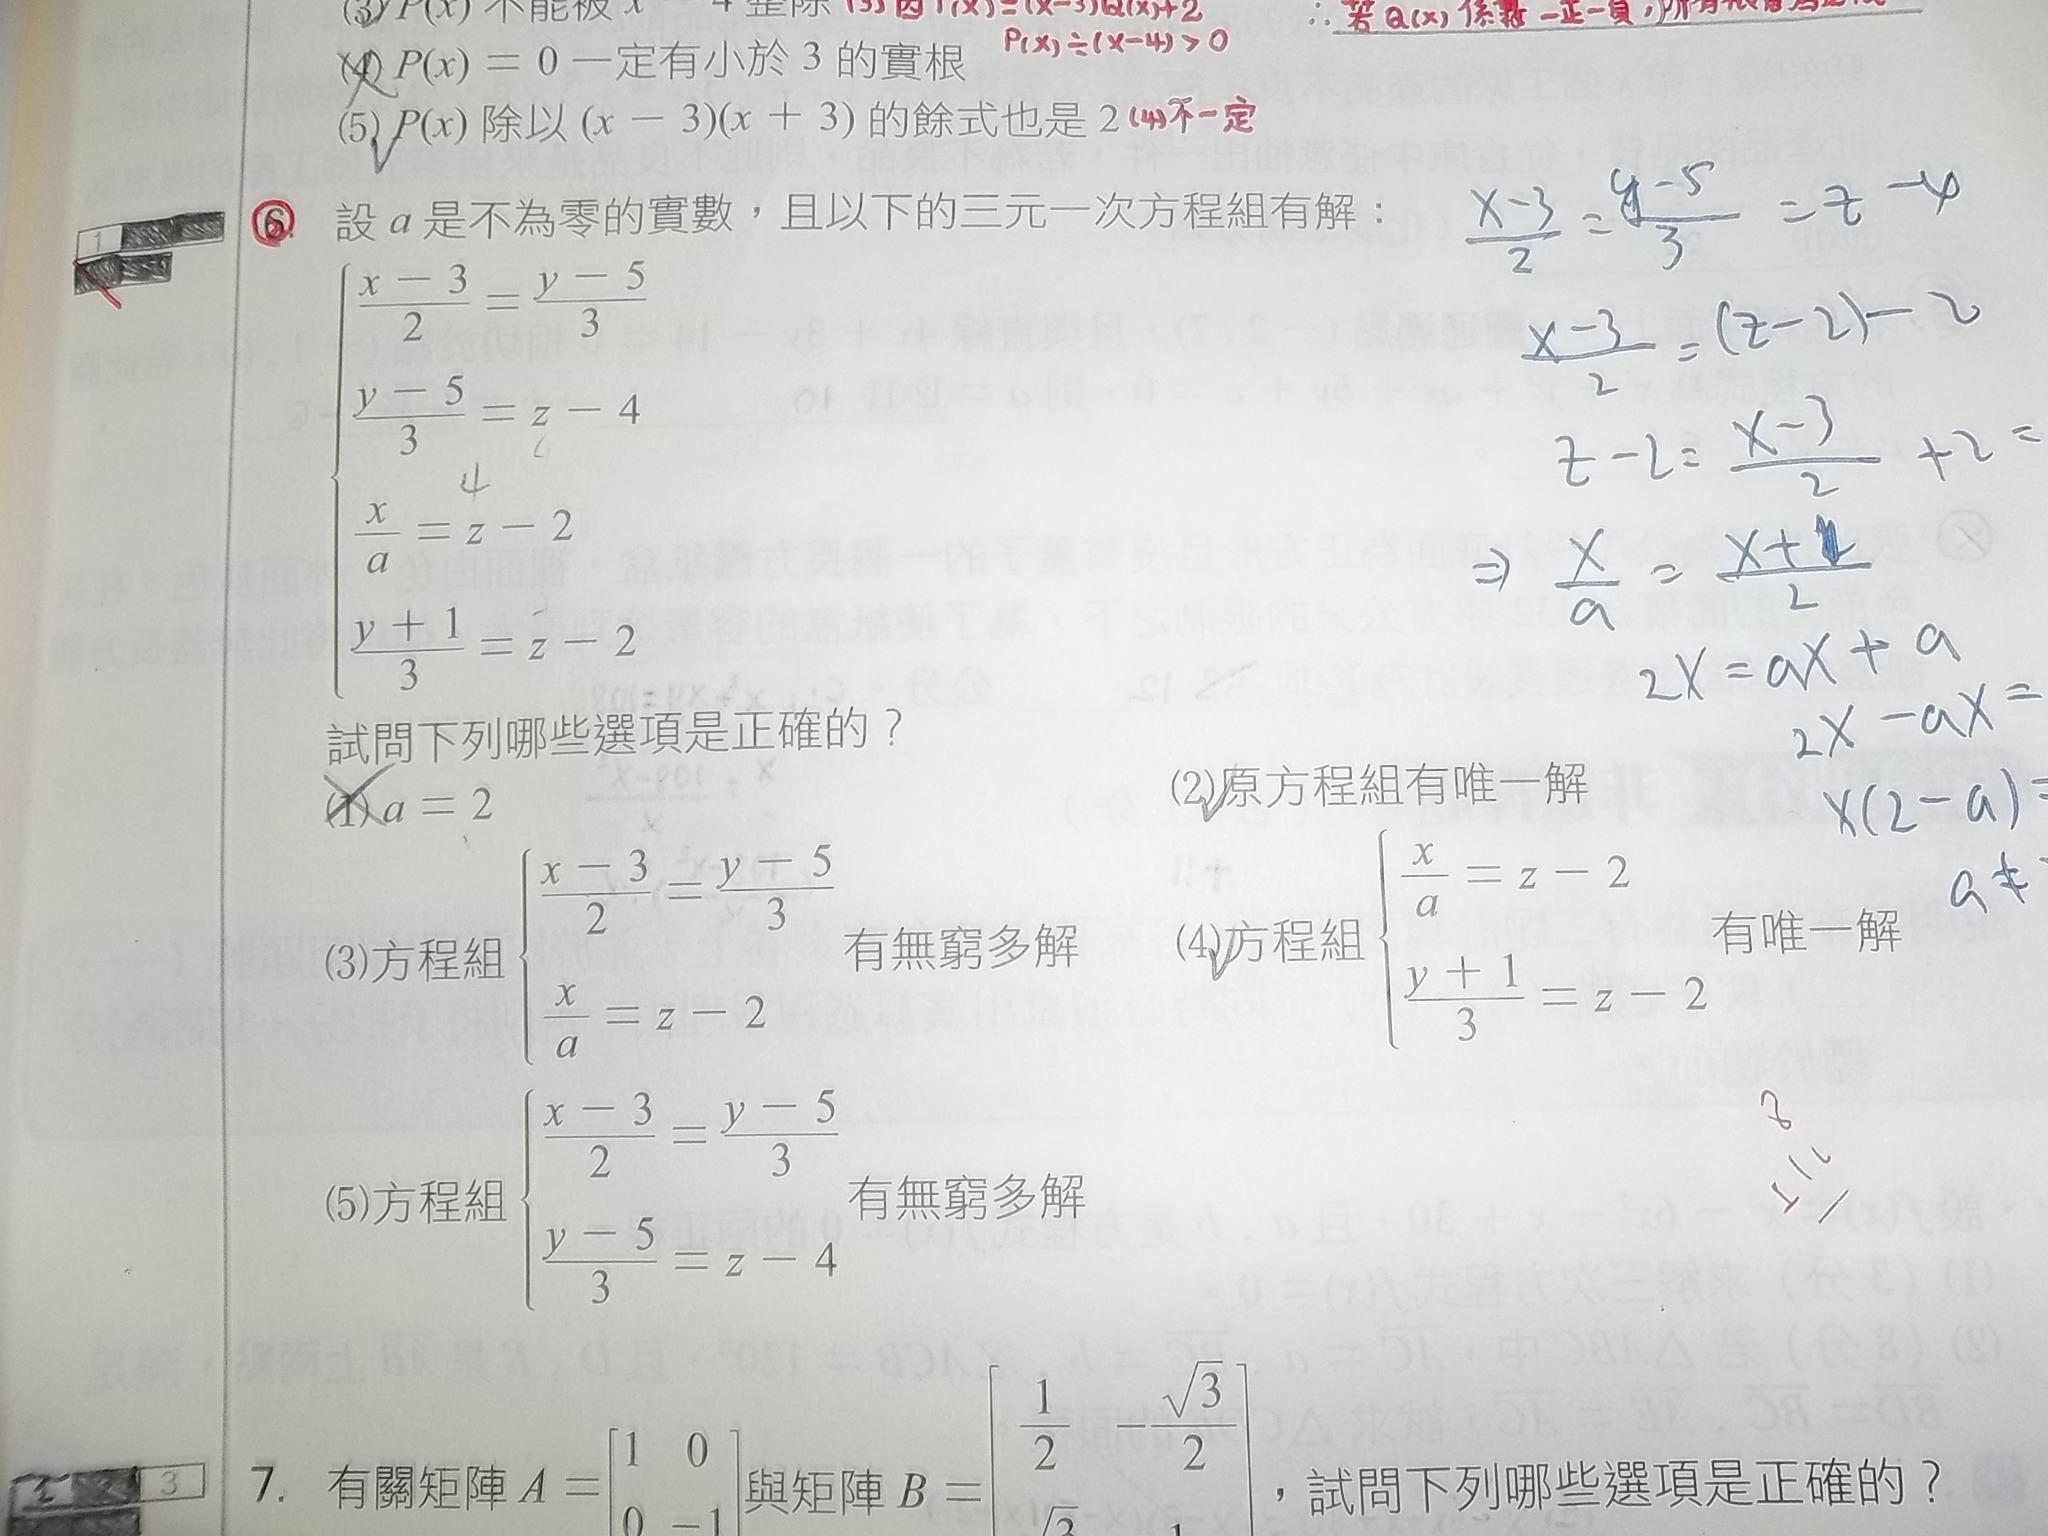 (3) P(x) 不能被 x − 4 整除 (3) 因 P(x)=(x-3)Q(x)+2
∴若Q(x)係數一正一負,
P(x)÷(x-4)>0
(4) P(x) = 0 一定有小於 3 的實根
(5) P(x) 除以 (x − 3)(x + 3) 的餘式也是 2 (4)不一定
1
6. 設 a 是不為零的實數，且以下的三元一次方程組有解：
{ (x − 3)/2 = (y − 5)/3
(y − 5)/3 = z − 4
4
x/a = z − 2
(y + 1)/3 = z − 2
試問下列哪些選項是正確的？
(1) a = 2
(2)原方程組有唯一解
(3)方程組 { (x − 3)/2 = (y − 5)/3
x/a = z − 2 有無窮多解
(4)方程組 { x/a = z − 2
(y + 1)/3 = z − 2 有唯一解
(5)方程組 { (x − 3)/2 = (y − 5)/3
(y − 5)/3 = z − 4 有無窮多解
(x-3)/2 = (y-5)/3 = z-4
(x-3)/2 = (z-2)-2
z-2 = (x-3)/2 +2 =
⇒ x/a = (x+1)/2
2x = ax + a
2x - ax =
x(2-a)=
a≠
1 2 3
7. 有關矩陣 A = [1 0
0 −1] 與矩陣 B = [1/2 −√3/2
√3 1 ，試問下列哪些選項是正確的？